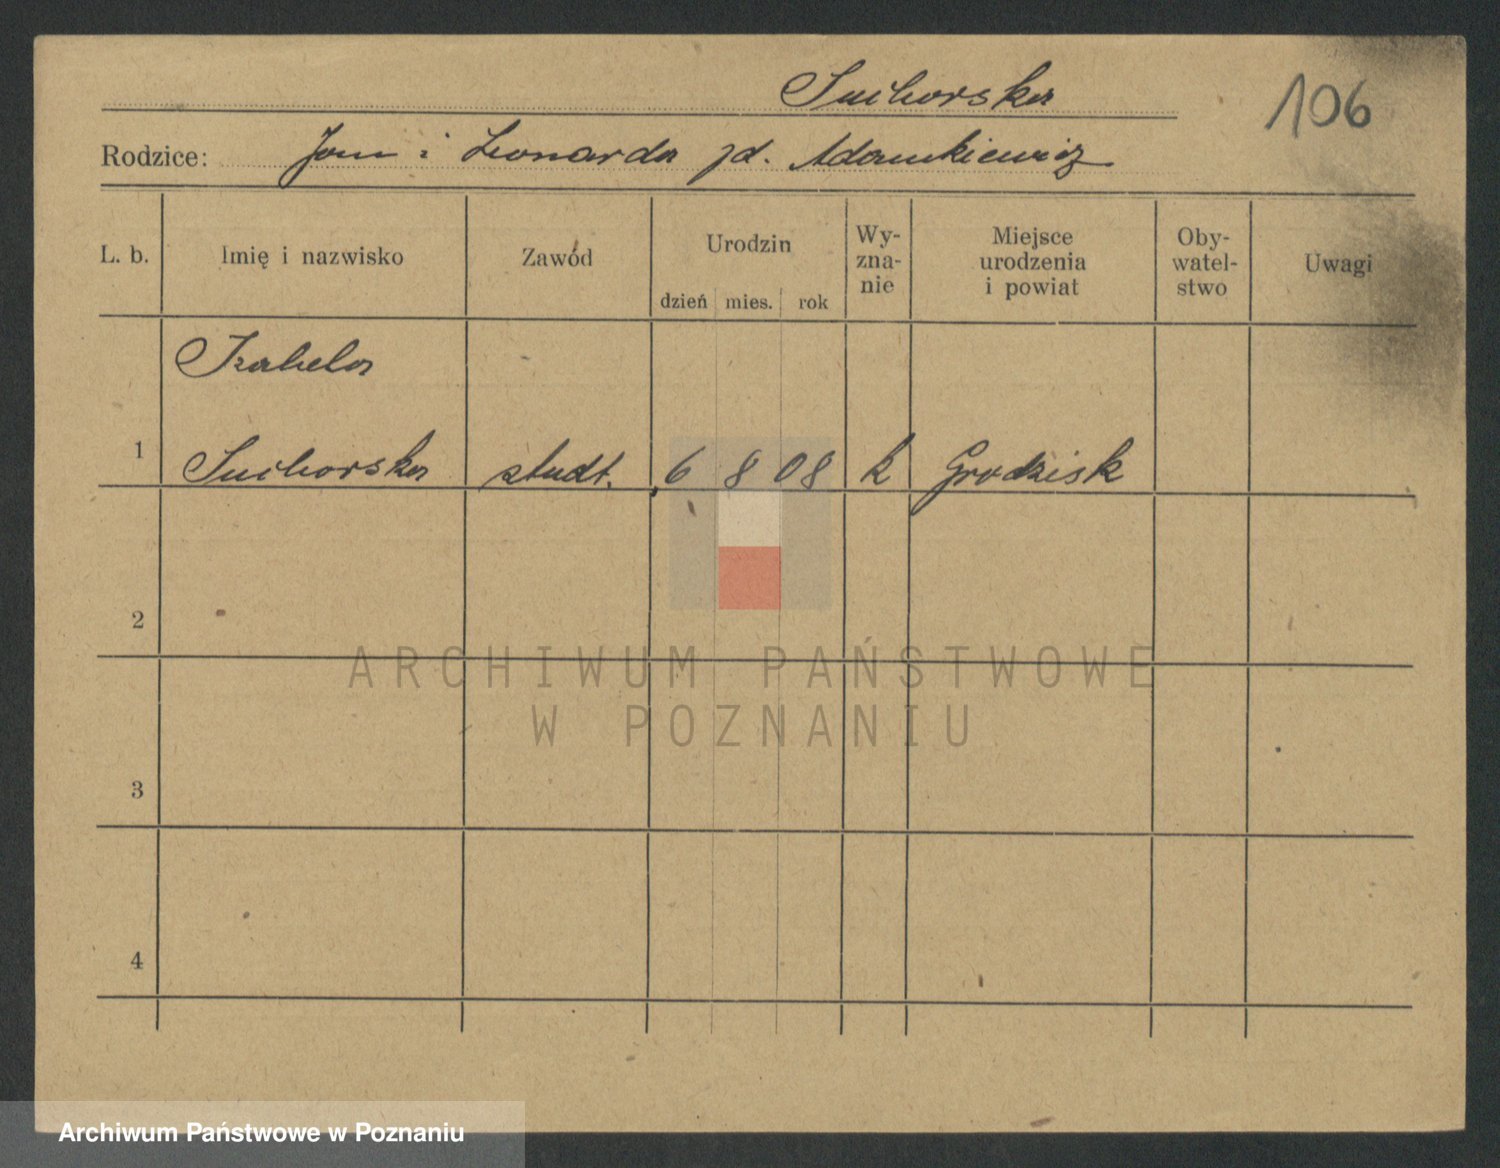 Suchorska
106
Rodzice: Jan i Leonarda zd. Adamkiewicz
L. b. Imię i nazwisko Zawód Urodzin dzień mies. rok Wy-zna-nie Miejsce urodzenia i powiat Oby-watel-stwo Uwagi
Izabela
1 Suchorska studt. 6 8 08 k Grodzisk
2
ARCHIWUM PAŃSTWOWE
W POZNANIU
3
4
Archiwum Państwowe w Poznaniu